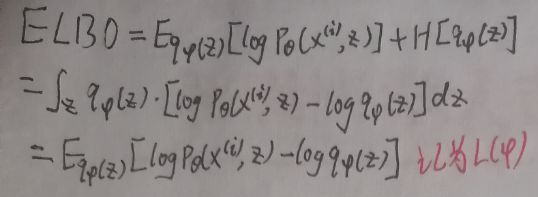 ELBO = E_{qφ(z)}[log Pθ(x⁽ⁱ⁾, z)] + H[qφ(z)]
= ∫_z qφ(z)·[log Pθ(x⁽ⁱ⁾, z) − log qφ(z)]dz
= E_{qφ(z)}[log Pθ(x⁽ⁱ⁾, z) − log qφ(z)] 记为 L(φ)